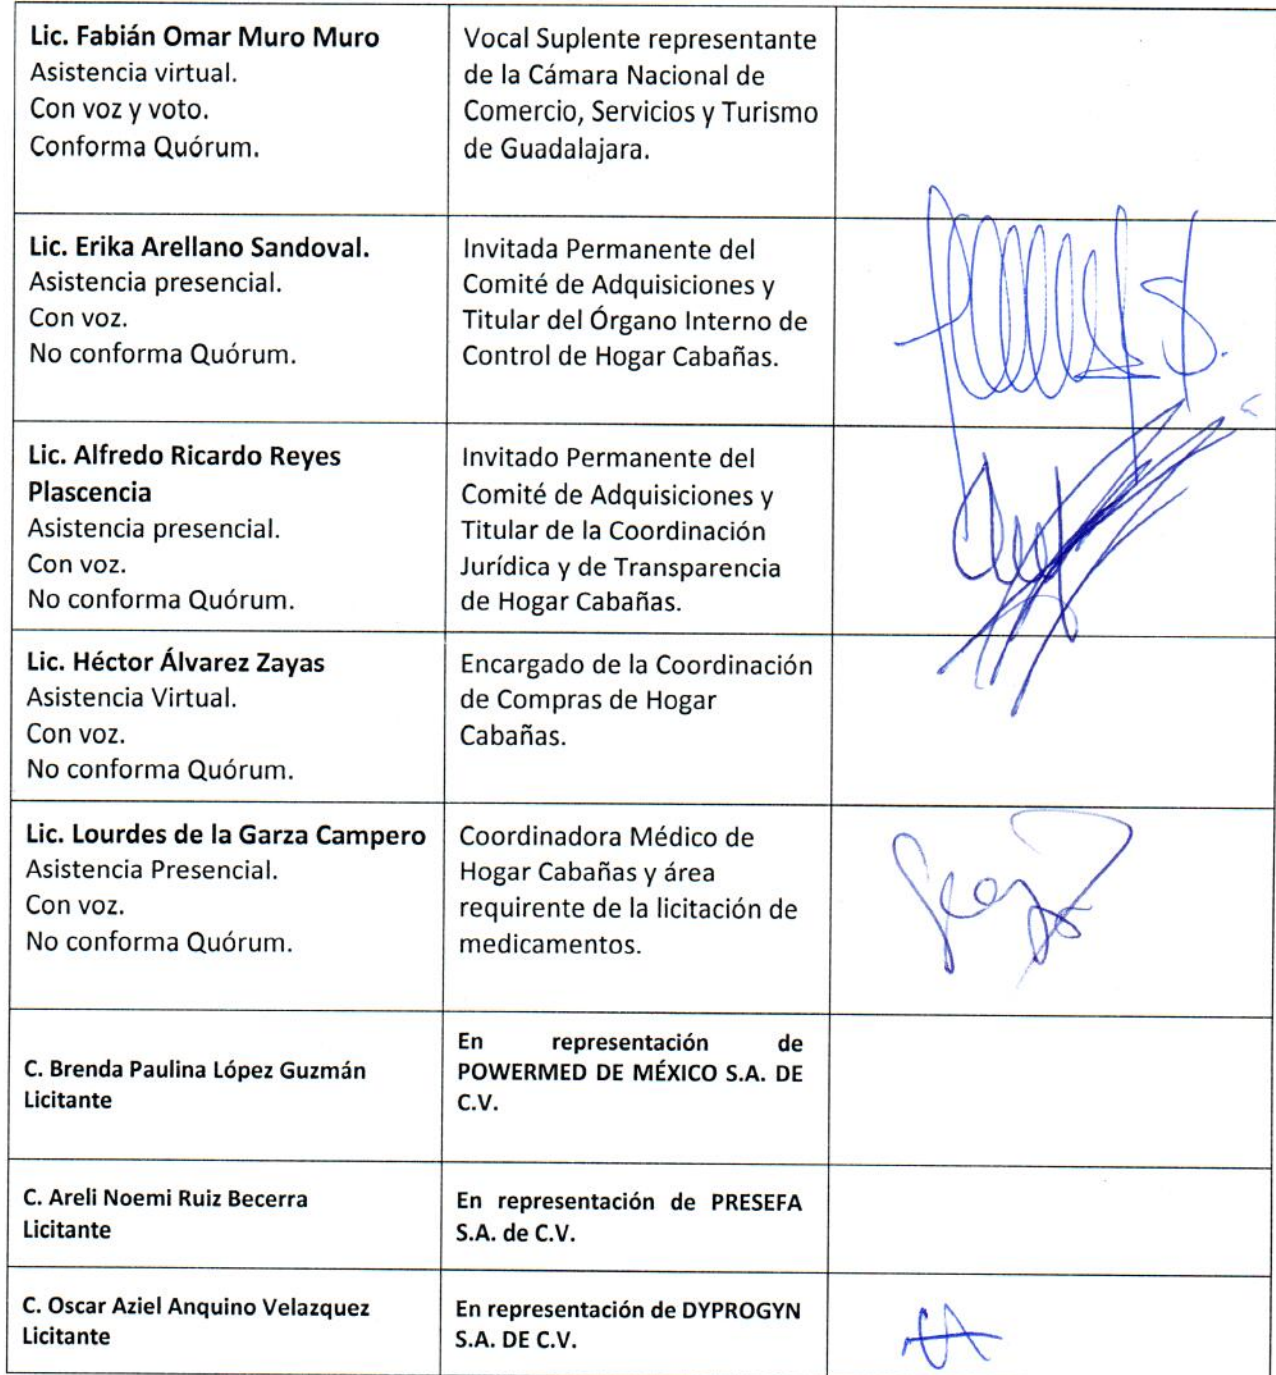 Lic. Fabián Omar Muro Muro
Asistencia virtual.
Con voz y voto.
Conforma Quórum.
Vocal Suplente representante
de la Cámara Nacional de
Comercio, Servicios y Turismo
de Guadalajara.
Lic. Erika Arellano Sandoval.
Asistencia presencial.
Con voz.
No conforma Quórum.
Invitada Permanente del
Comité de Adquisiciones y
Titular del Órgano Interno de
Control de Hogar Cabañas.
Lic. Alfredo Ricardo Reyes
Plascencia
Asistencia presencial.
Con voz.
No conforma Quórum.
Invitado Permanente del
Comité de Adquisiciones y
Titular de la Coordinación
Jurídica y de Transparencia
de Hogar Cabañas.
Lic. Héctor Álvarez Zayas
Asistencia Virtual.
Con voz.
No conforma Quórum.
Encargado de la Coordinación
de Compras de Hogar
Cabañas.
Lic. Lourdes de la Garza Campero
Asistencia Presencial.
Con voz.
No conforma Quórum.
Coordinadora Médico de
Hogar Cabañas y área
requirente de la licitación de
medicamentos.
C. Brenda Paulina López Guzmán
Licitante
En representación de
POWERMED DE MÉXICO S.A. DE
C.V.
C. Areli Noemi Ruiz Becerra
Licitante
En representación de PRESEFA
S.A. de C.V.
C. Oscar Aziel Anquino Velazquez
Licitante
En representación de DYPROGYN
S.A. DE C.V.